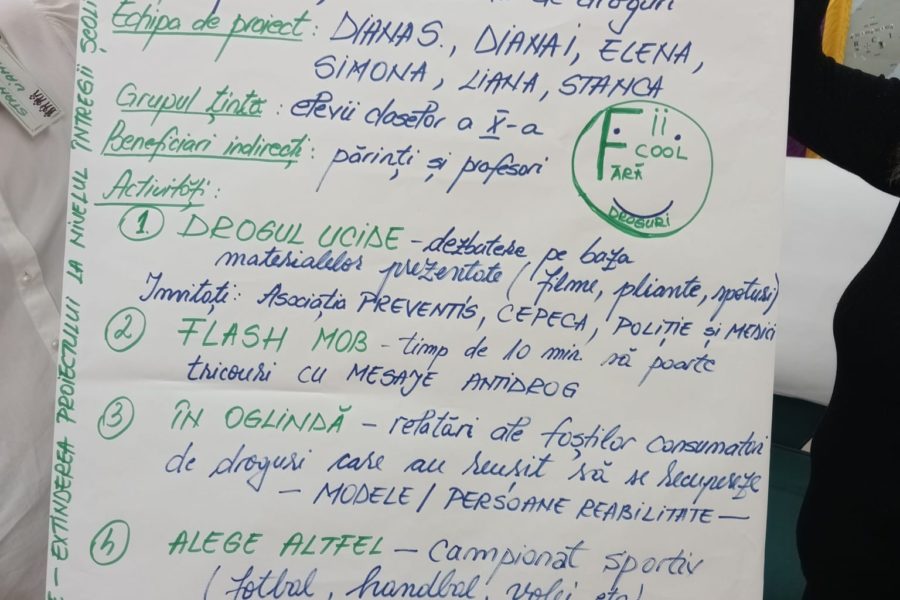 de droguri
Echipa de proiect: DIANA S., DIANA I, ELENA,
SIMONA, LIANA, STANCA
Grupul țintă: elevii claselor a X-a
Beneficiari indirecți: părinți și profesori
Fii
COOL
FĂRĂ
DROGURI
Activități:
1. DROGUL UCIDE - dezbatere pe baza
materialelor prezentate (filme, pliante, spoturi)
Invitați: Asociația PREVENTIS, CEPECA, POLIȚIE și MEDICI
2 FLASH MOB - timp de 10 min. să poarte
tricouri cu MESAJE ANTIDROG
3 ÎN OGLINDĂ - relatări ale foștilor consumatori
de droguri care au reușit să se recupereze
- MODELE / PERSOANE REABILITATE -
4 ALEGE ALTFEL - campionat sportiv
(fotbal, handbal, volei etc)
- EXTINDEREA PROIECTULUI LA NIVELUL ÎNTREGII ȘCOLI